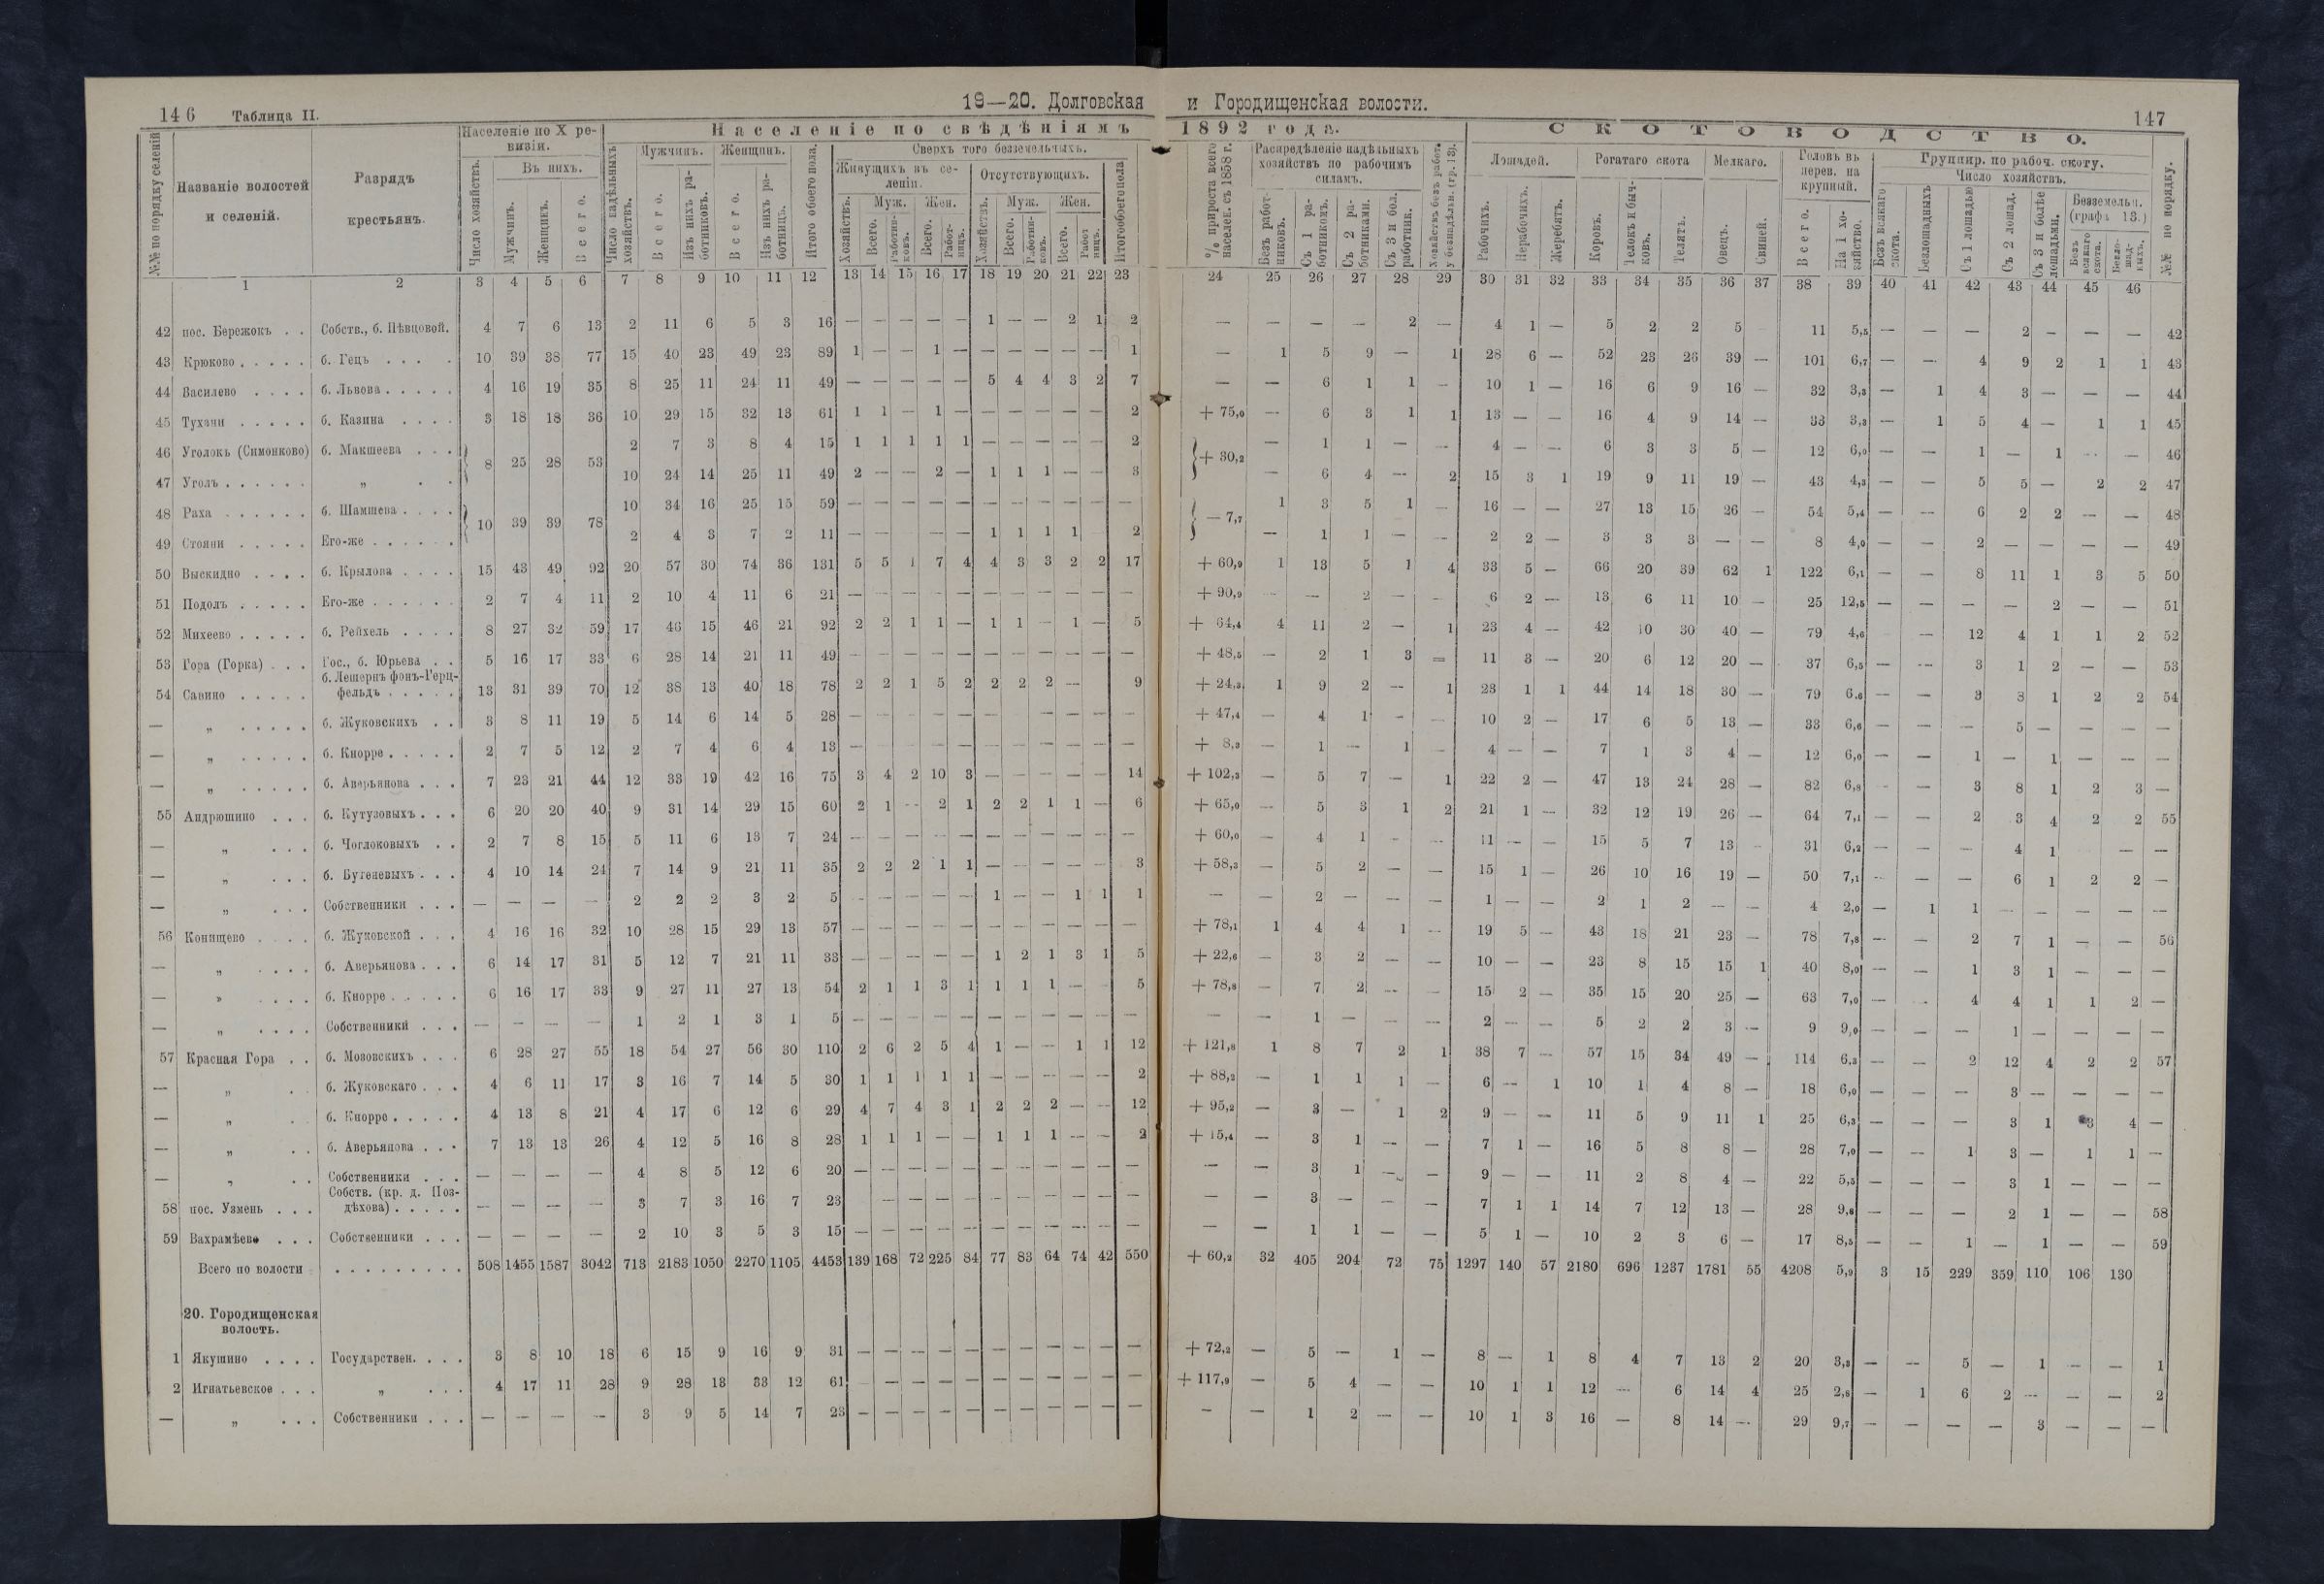 146 Таблица II.
19—20. Долговская и Городищенская волости.
147
№№ по порядку селеній
Названіе волостей и селеній.
Разрядъ крестьянъ.
Населеніе по X ревизіи.
Число хозяйствъ.
Въ нихъ.
Мужчинъ.
Женщинъ.
Всего.
Населеніе по свѣдѣніямъ 1892 года.
Число надѣльныхъ хозяйствъ.
Мужчинъ.
Всего.
Изъ нихъ работниковъ.
Женщинъ.
Всего.
Изъ нихъ работницъ.
Итого обоего пола.
Сверхъ того безземельныхъ.
Живущихъ въ селеніи.
Хозяйствъ.
Муж.
Всего.
Работниковъ.
Жен.
Всего.
Работницъ.
Отсутствующихъ.
Хозяйствъ.
Муж.
Всего.
Работниковъ.
Жен.
Всего.
Работницъ.
Итого обоего пола
% прироста всего населен. съ 1858 г.
Распредѣленіе надѣльныхъ хозяйствъ по рабочимъ силамъ.
Безъ работниковъ.
Съ 1 работникомъ.
Съ 2 работниками.
Съ 3 и бол. работник.
Хозяйствъ безъ работ. у безнадѣльн. (гр. 13).
СКОТОВОДСТВО.
Лошадей.
Рабочихъ.
Нерабочихъ.
Жеребятъ.
Рогатаго скота
Коровъ.
Телокъ и бычковъ.
Телятъ.
Мелкаго.
Овецъ.
Свиней.
Головъ въ перев. на крупный.
Всего.
На 1 хозяйство.
Группир. по рабоч. скоту.
Число хозяйствъ.
Безъ всякаго скота.
Безлошадныхъ
Съ 1 лошадью
Съ 2 лошад.
Съ 3 и болѣе лошадьми.
Безземельн. (графа 13.)
Безъ всякаго скота.
Безлошадныхъ.
№№ по порядку.
1 2 3 4 5 6 7 8 9 10 11 12 13 14 15 16 17 18 19 20 21 22 23 24 25 26 27 28 29 30 31 32 33 34 35 36 37 38 39 40 41 42 43 44 45 46
42 пос. Бережокъ . . Собств., б. Пѣвцовой. 4 7 6 13 2 11 6 5 3 16 — — — — — 1 — — 2 1 2 — — — — 2 — 4 1 — 5 2 2 5 11 5,5 — — — 2 — — — 42
43 Крюково . . . . . б. Гецъ . . . . 10 39 38 77 15 40 23 49 23 89 1 — — 1 — — — — — — 1 — 1 5 9 — 1 28 6 — 52 23 26 39 — 101 6,7 — — 4 9 2 1 1 43
44 Василево . . . . б. Львова . . . . . 4 16 19 35 8 25 11 24 11 49 — — — — — 5 4 4 3 2 7 — — 6 1 1 — 10 1 — 16 6 9 16 — 32 3,3 — 1 4 3 — — — 44
45 Тухани . . . . . б. Казина . . . . 3 18 18 36 10 29 15 32 13 61 1 1 — 1 — — — — — — 2 + 75,0 — 6 3 1 1 13 — — 16 4 9 14 — 33 3,3 — 1 5 4 — 1 1 45
46 Уголокъ (Симонково) б. Макшеева . . . 8 25 28 53 2 7 3 8 4 15 1 1 1 1 1 — — — — — 2 + 30,2 — 1 1 — — 4 — — 6 3 3 5 — 12 6,0 — — 1 — 1 — — 46
47 Уголъ . . . . . . „ . . 10 24 14 25 11 49 2 — — 2 — 1 1 1 — — 3 — 6 4 — 2 15 3 1 19 9 11 19 — 43 4,3 — — 5 5 — 2 2 47
48 Раха . . . . . . б. Шамшева . . . . 10 39 39 78 10 34 16 25 15 59 — — — — — — — — — — — — 7,7 1 3 5 1 — 16 — — 27 13 15 26 — 54 5,4 — — 6 2 2 — — 48
49 Стояни . . . . . Его-же . . . . . . 2 4 3 7 2 11 — — — — — 1 1 1 1 2 — 1 1 — — 2 2 — 3 3 3 — — 8 4,0 — — 2 — — — — 49
50 Выскидно . . . . б. Крылова . . . . 15 43 49 92 20 57 30 74 36 131 5 5 1 7 4 4 3 3 2 2 17 + 60,9 1 13 5 1 4 33 5 — 66 20 39 62 1 122 6,1 — — 8 11 1 3 5 50
51 Подолъ . . . . . Его-же . . . . . . 2 7 4 11 2 10 4 11 6 21 — — — — — — — — — — — + 90,9 — — 2 — — 6 2 — 13 6 11 10 — 25 12,5 — — — — 2 — — 51
52 Михеево . . . . . б. Рейхель . . . . 8 27 32 59 17 46 15 46 21 92 2 2 1 1 — 1 1 — 1 — 5 + 64,4 4 11 2 — 1 23 4 — 42 10 30 40 — 79 4,6 — 12 4 1 1 2 52
53 Гора (Горка) . . . Гос., б. Юрьева . . 5 16 17 33 6 28 14 21 11 49 — — — — — — — — — — — + 48,5 — 2 1 3 — 11 3 — 20 6 12 20 — 37 6,5 — — 3 1 2 — — 53
54 Савино . . . . . б. Лешернъ фонъ-Герцфельдъ . . . . . 13 31 39 70 12 38 13 40 18 78 2 2 1 5 2 2 2 2 — 9 + 24,3 1 9 2 — 1 23 1 1 44 14 18 30 — 79 6,6 — — 3 3 1 2 2 54
— „ . . . . . б. Жуковскихъ . . 3 8 11 19 5 14 6 14 5 28 — — — — — — — — — — — + 47,4 — 4 1 — — 10 2 — 17 6 5 13 — 33 6,6 — — — 5 — — — —
— „ . . . . . б. Кнорре . . . . . 2 7 5 12 2 7 4 6 4 13 — — — — — — — — — — — + 8,3 — 1 — 1 — 4 — — 7 1 3 4 — 12 6,0 — — 1 — 1 — — —
— „ . . . . . б. Аверьянова . . . 7 23 21 44 12 33 19 42 16 75 3 4 2 10 3 — — — — — 14 + 102,3 — 5 7 — 1 22 2 — 47 13 24 28 — 82 6,8 — — 3 8 1 2 3 —
55 Андрюшино . . . б. Кутузовыхъ . . . 6 20 20 40 9 31 14 29 15 60 2 1 — 2 1 2 2 1 1 — 6 + 65,0 — 5 3 1 2 21 1 — 32 12 19 26 — 64 7,1 — — 2 3 4 2 2 55
— „ . . . б. Чоглоковыхъ . . 2 7 8 15 5 11 6 13 7 24 — — — — — — — — — — — + 60,0 — 4 1 — — 11 — — 15 5 7 13 — 31 6,2 — — — 4 1 — —
— „ . . . б. Бугеневыхъ . . . 4 10 14 24 7 14 9 21 11 35 2 2 2 1 1 — — — — — 3 + 58,3 — 5 2 — — 15 1 — 26 10 16 19 — 50 7,1 — — — 6 1 2 2 —
— „ . . . Собственники . . . — — — — 2 2 2 3 2 5 — — — — — 1 — — 1 1 1 — — 2 — — — 1 — — 2 1 2 — — 4 2,0 — 1 1 — — — — —
56 Конищево . . . . б. Жуковской . . . 4 16 16 32 10 28 15 29 13 57 — — — — — — — — — — — + 78,1 1 4 4 1 — 19 5 — 43 18 21 23 — 78 7,8 — — 2 7 1 — — 56
— „ . . . . б. Аверьянова . . . 6 14 17 31 5 12 7 21 11 33 — — — — — 1 2 1 3 1 5 + 22,6 — 3 2 — — 10 — — 23 8 15 15 1 40 8,0 — — 1 3 1 — — —
— „ . . . . б. Кнорре . . . . . 6 16 17 33 9 27 11 27 13 54 2 1 1 3 1 1 1 1 — — 5 + 78,8 — 7 2 — — 15 2 — 35 15 20 25 — 63 7,0 — — 4 4 1 1 2 —
— „ . . . . Собственники . . . — — — — 1 2 1 3 1 5 — — — — — — — — — — — — — 1 — — — 2 — — 5 2 2 3 — 9 9,0 — — — 1 — — — —
57 Красная Гора . . б. Мозовскихъ . . . 6 28 27 55 18 54 27 56 30 110 2 6 2 5 4 1 — — 1 1 12 + 121,8 1 8 7 2 1 38 7 — 57 15 34 49 — 114 6,3 — — 2 12 4 2 2 57
— „ . . б. Жуковскаго . . . 4 6 11 17 3 16 7 14 5 30 1 1 1 1 1 — — — — — 2 + 88,2 — 1 1 1 — 6 — 1 10 1 4 8 — 18 6,0 — — — 3 — — — —
— „ . . б. Кнорре . . . . . 4 13 8 21 4 17 6 12 6 29 4 7 4 3 1 2 2 2 — — 12 + 95,2 — 3 — 1 2 9 — — 11 5 9 11 1 25 6,3 — — — 3 1 3 4 —
— „ . . б. Аверьянова . . . 7 13 13 26 4 12 5 16 8 28 1 1 1 — — 1 1 1 — — 2 + 15,4 — 3 1 — — 7 1 — 16 5 8 8 — 28 7,0 — — 1 3 — 1 1 —
— „ . . Собственники . . . — — — — 4 8 5 12 6 20 — — — — — — — — — — — — — 3 1 — — 9 — — 11 2 8 4 — 22 5,5 — — — 3 1 — — —
58 пос. Узмень . . . Собств. (кр. д. Поздѣхова) . . . . . — — — — 3 7 3 16 7 23 — — — — — — — — — — — — 3 — — — 7 1 1 14 7 12 13 — 28 9,8 — — — 2 1 — — 58
59 Вахрамѣево . . . Собственники . . . — — — — 2 10 3 5 3 15 — — — — — — — — — — — — — 1 1 — — 5 1 — 10 2 3 6 — 17 8,5 — — 1 — 1 — — 59
Всего по волости . . . . . . . . . 508 1455 1587 3042 713 2183 1050 2270 1105 4453 139 168 72 225 84 77 83 64 74 42 550 + 60,2 32 405 204 72 75 1297 140 57 2180 696 1237 1781 55 4208 5,9 3 15 229 359 110 106 130
20. Городищенская волость.
1 Якушино . . . . Государствен. . . . 3 8 10 18 6 15 9 16 9 31 — — — — — — — — — — — + 72,2 — 5 — 1 — 8 — 1 8 4 7 13 2 20 3,3 — — 5 — 1 — — 1
2 Игнатьевское . . . „ . . . 4 17 11 28 9 28 13 33 12 61 — — — — — — — — — — — + 117,9 — 5 4 — — 10 1 1 12 — 6 14 4 25 2,8 — 1 6 2 — — — 2
— „ . . . Собственники . . . — — — — 3 9 5 14 7 23 — — — — — — — — — — — — — 1 2 — — 10 1 3 16 — 8 14 — 29 9,7 — — — — 3 — — —